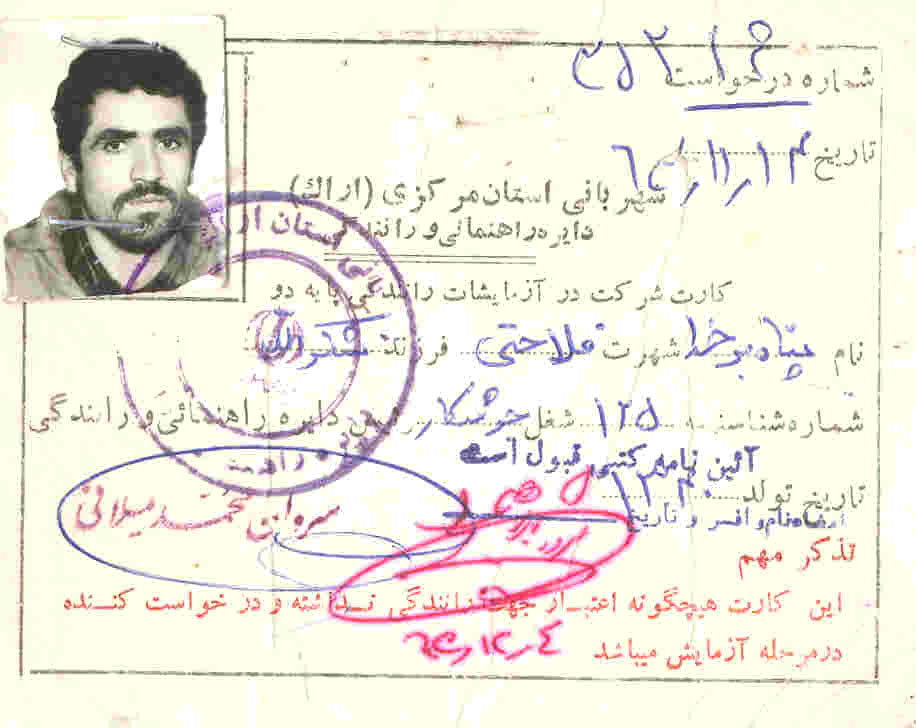 شماره درخواست
تاریخ
شهربانی استان مرکزی (اراک)
دایره راهنمائی و رانندگی
کارت شرکت در آزمایشات رانندگی پایه دو
نام پناه بر خدا شهرت فلاحتی فرزند شکرالله
شماره شناسنامه ۱۲۵ شغل جوشکار رئیس دایره راهنمائی و رانندگی
آئین نامه کتبی قبول است
تاریخ تولد ۱۳۴۰
امضاء نام و افسر و تاریخ
سروان محمد میلانی
تذکر مهم
این کارت هیچگونه اعتبار جهت رانندگی نداشته و در خواست کننده
در مرحله آزمایش میباشد